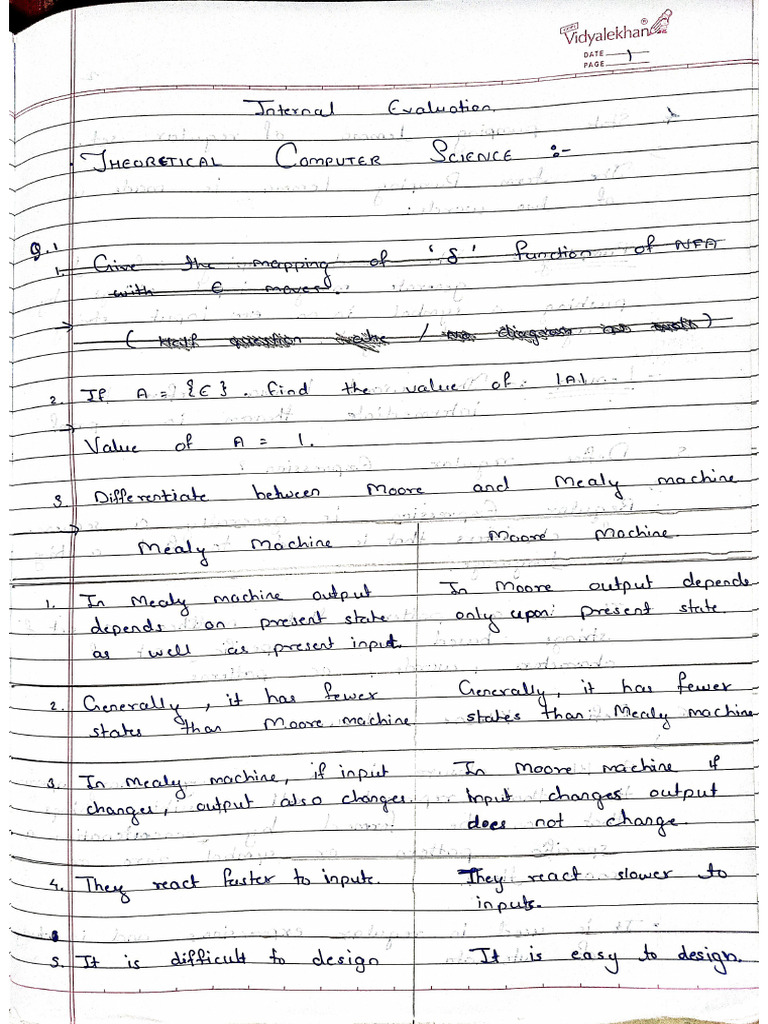 Vidyalekhan
DATE
PAGE 1
Internal Evaluation
THEORETICAL COMPUTER SCIENCE :-
Q.1
1. Give the mapping of 'δ' function of NFA
with ε moves.
→
2. If A = {ε}. find the value of |A|
→
Value of A = 1.
3. Differentiate between Moore and Mealy machine
→
Mealy Machine Moore Machine
1. In Mealy machine output In Moore output depends
depends on present state only upon present state
as well as present input.
2. Generally, it has fewer Generally, it has fewer
states than Moore machine states than Mealy machine
3. In Mealy machine, if input In Moore machine if
changes, output also changes. input changes output
does not change.
4. They react faster to inputs. They react slower to
inputs.
5. It is difficult to design It is easy to design.